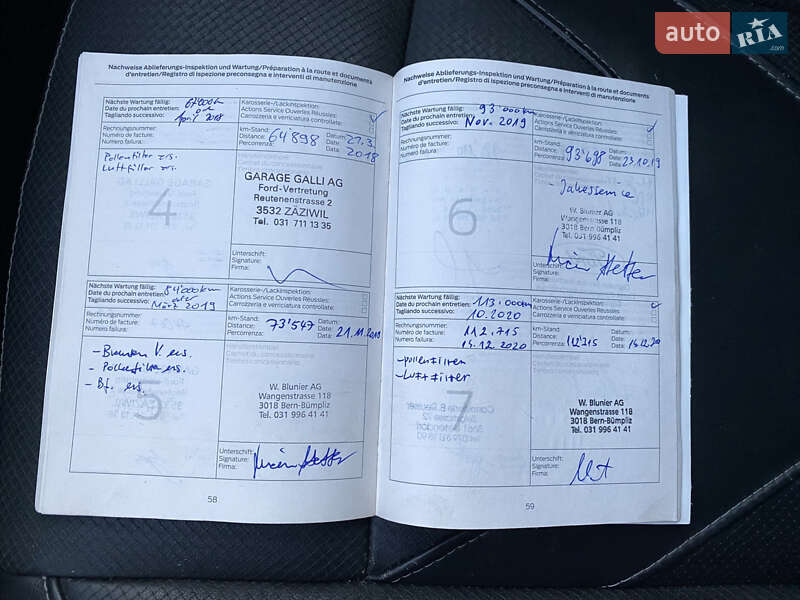 auto RIA .com
Nachweise Ablieferungs-Inspektion und Wartung/Préparation à la route et documents
d'entretien/Registro di ispezione preconsegna e interventi di manutenzione
Nächste Wartung fällig:
Date du prochain entretien:
Tagliando successivo: April 2018
Karosserie-/Lackinspektion:
Actions Service Ouvertes Réussies:
Carrozzeria e verniciatura controllate:
Rechnungsnummer:
Numéro de facture:
Numero failura:
km-Stand:
Distance: 64898
Percorrenza:
Datum:
Date:
Data: 2018
Pollenfilter ers.
Luftfilter ers.
4
GARAGE GALLI AG
Ford-Vertretung
Reutenenstrasse 2
3532 ZÄZIWIL
Tel. 031 711 13 35
Unterschrift:
Signature:
Firma:
Nächste Wartung fällig: 84000km
Date du prochain entretien: oder
Tagliando successivo: März 2019
Karosserie-/Lackinspektion:
Actions Service Ouvertes Réussies:
Carrozzeria e verniciatura controllate:
Rechnungsnummer:
Numéro de facture:
Numero failura:
km-Stand:
Distance: 73'547
Percorrenza:
Datum:
Date: 21.11.2018
Data:
- Bremsen V. ers.
- Pollenfilter ers.
- Bf. ers.
5
W. Blunier AG
Wangenstrasse 118
3018 Bern-Bümpliz
Tel. 031 996 41 41
Unterschrift:
Signature:
Firma:
58
Nachweise Ablieferungs-Inspektion und Wartung/Préparation à la route et documents
d'entretien/Registro di ispezione preconsegna e interventi di manutenzione
Nächste Wartung fällig: 93'000km
Date du prochain entretien:
Tagliando successivo: Nov. 2019
Karosserie-/Lackinspektion:
Actions Service Ouvertes Réussies:
Carrozzeria e verniciatura controllate:
Rechnungsnummer:
Numéro de facture:
Numero failura:
km-Stand:
Distance: 93'698
Percorrenza:
Datum:
Date:
Data: 23.10.19
- Jahresservice
6
W. Blunier AG
Wangenstrasse 118
3018 Bern-Bümpliz
Tel. 031 996 41 41
Unterschrift:
Signature:
Firma:
Nächste Wartung fällig: 113'000km
Date du prochain entretien:
Tagliando successivo: 10.2020
Karosserie-/Lackinspektion:
Actions Service Ouvertes Réussies:
Carrozzeria e verniciatura controllate:
Rechnungsnummer:
Numéro de facture: 112.715
Numero failura: 15.12.2020
km-Stand:
Distance:
Percorrenza: 112'715
Datum:
Date:
Data: 15.12.20
- pollenfilter
- Luftfilter
7
W. Blunier AG
Wangenstrasse 118
3018 Bern-Bümpliz
Tel. 031 996 41 41
Unterschrift:
Signature:
Firma:
59